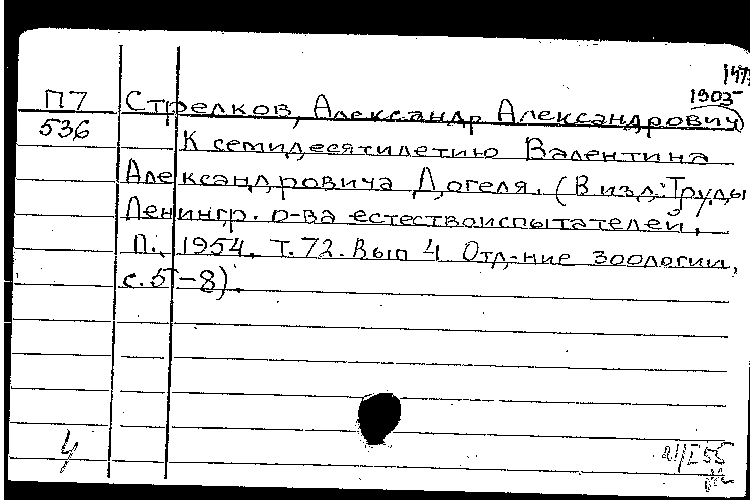 1903
П7 Стрелков, Александр Александрович
536 К семидесятилетию Валентина
Александровича Догеля. (В изд.: Труды
Ленингр. о-ва естествоиспытателей,
Л., 1954. Т. 72. Вып 4 Отд-ние зоологии,
с. 5-8).
4 21/I 55